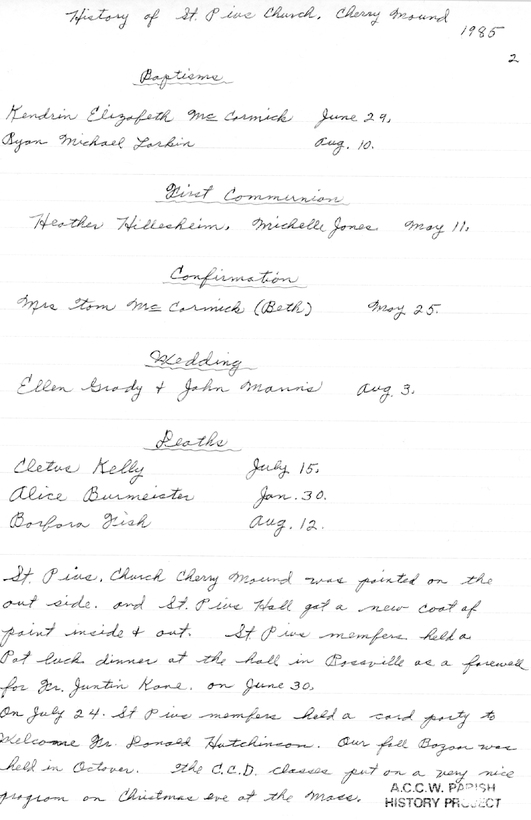 History of St. Pius Church, Cherry Mound
1985
2
Baptisms
Kendrin Elizabeth Mc Cormick June 29.
Ryan Michael Larkin Aug. 10.
First Communion
Heather Hillesheim, Michelle Jones May 11,
Confirmation
Mrs Tom Mc Cormick (Beth) May 25.
Wedding
Ellen Grady & John Manns Aug 3.
Deaths
Cletus Kelly July 15.
Alice Burmeister Jan. 30.
Barbara Fish Aug. 12.
St. Pius, Church Cherry Mound was painted on the
out side. and St. Pius Hall got a new coat of
paint inside & out. St. Pius members held a
Pot luck dinner at the hall in Rossville as a farewell
for Fr. Juntin Kane. on June 30.
On July 24. St Pius members held a card party to
Welcome Fr. Donald Hutchinson. Our fall Bazaar was
held in October. The C.C.D. classes put on a very nice
program on Christmas eve at the Mass.
A.C.C.W. PARISH
HISTORY PROJECT